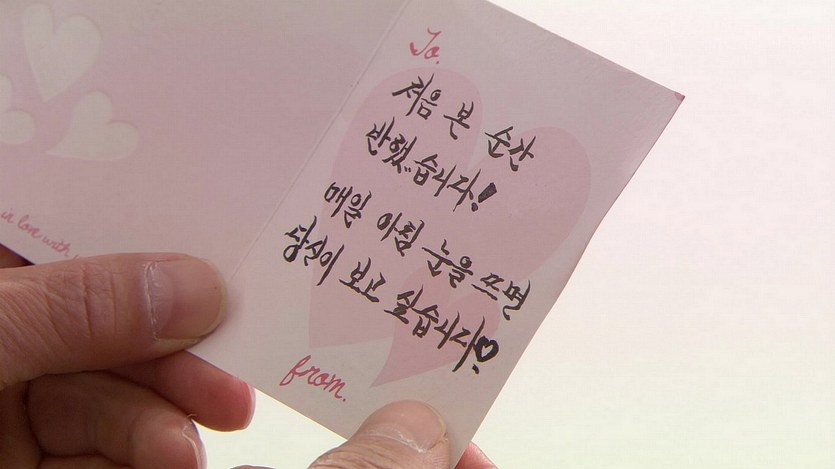 To.
처음 본 순간
반했습니다!
매일 아침 눈을 뜨면
당신이 보고 싶습니다♡
from.
in love with